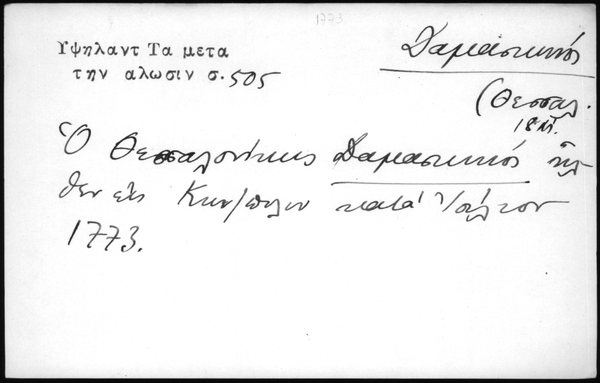 1773
Υψηλαντ Τα μετα
την αλωσιν σ. 505
Δαμασκηνός
(Θεσσαλ.
18 αι.
Ὁ Θεσσαλονίκης Δαμασκηνός ἦλ
θεν εἰς Κων/πολιν κατά
1773.